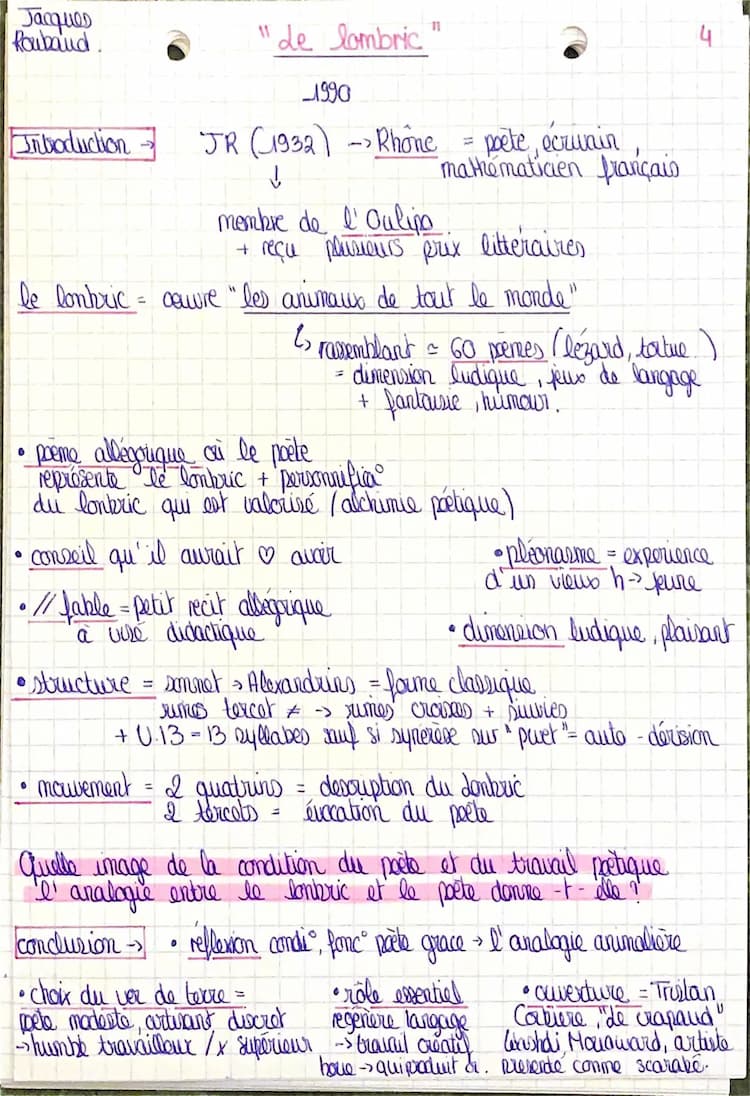 Jacques
Roubaud.
"de lombric"
4
1990
Introduction →
JR (1932) → Rhône = poète, écrivain,
mathématicien français
↓
membre de l'Oulipo
+ reçu plusieurs prix littéraires
le lombric = œuvre "les animaux de tout le monde"
↳ rassemblant ≈ 60 poèmes (lézard, tortue)
= dimension ludique, jeux de langage
+ fantaisie, humour.
• poème allégorique où le poète
représente le lombric + personnifica°
du lombric qui est valorisé (alchimie poétique)
• conseil qu'il aurait ♡ avoir
• pléonasme = experience
d'un vieux h → jeune
• // fable = petit recit allégorique
à visé didactique
• dimension ludique, plaisant
• structure = sonnet → Alexandrins = forme classique
rimes tercet ≠ → rimes croisées + suivies
+ V.13 = 13 syllabes sauf si synérèse sur "puet" = auto-dérision
• mouvement = 2 quatrins = description du lombric
2 tercets = évocation du poète
Quelle image de la condition du poète et du travail poétique
l'analogie entre le lombric et le poète donne-t-elle?
conclusion →
• réflexion condi°, fonc° poète grace → l'analogie animalière
• choix du ver de terre =
poète modeste, artisant discret
→ humble travailleur / x supérieur
• rôle essentiel
regénère langage
→ travail créatif
boue → qui produit
• ouverture = Tristan
Corbière, "de crapaud"
Mouaward, artiste
presenté comme scarabé.